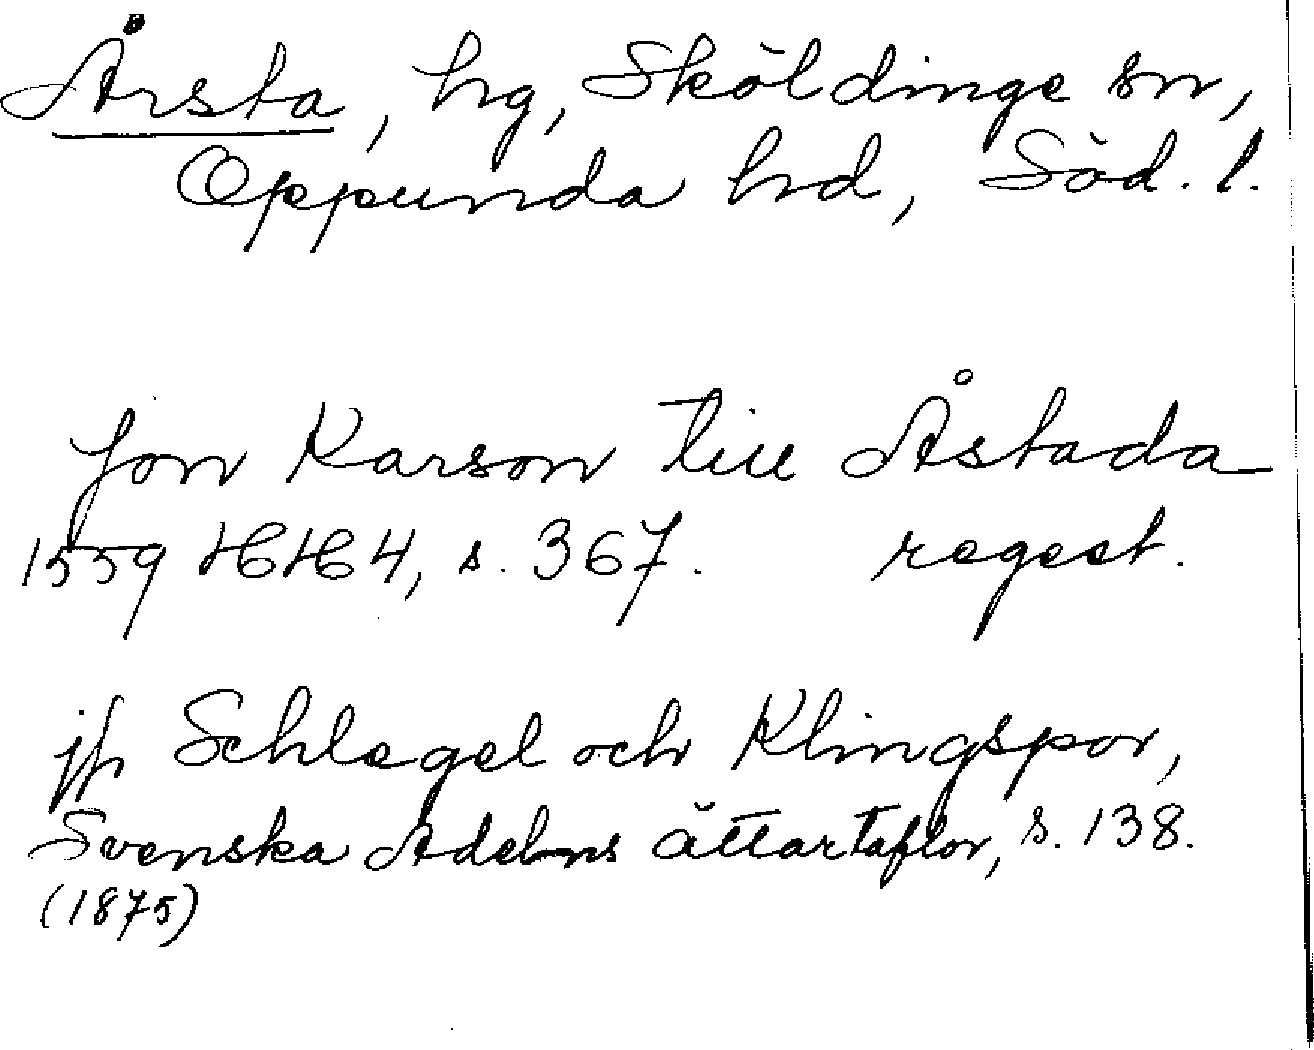 Årsta, hg, Sköldinge sn,
Oppunda hd, Söd. l.
Jon Karson till Åstada
1559 HH 4, s. 367. regest.
jfr Schlegel och Klingspor,
Svenska Adelns ättartaflor, s. 138.
(1875)